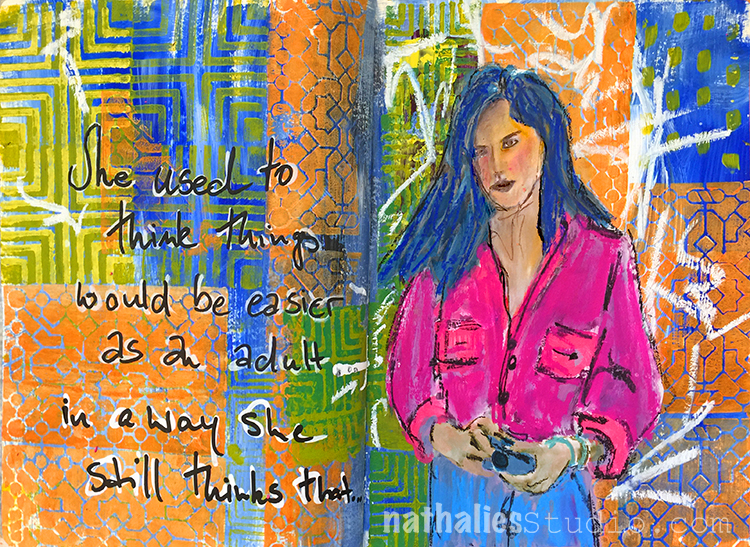 She used to
think things
would be easier
as an adult
in a way she
still thinks that...
nathaliesStudio.com